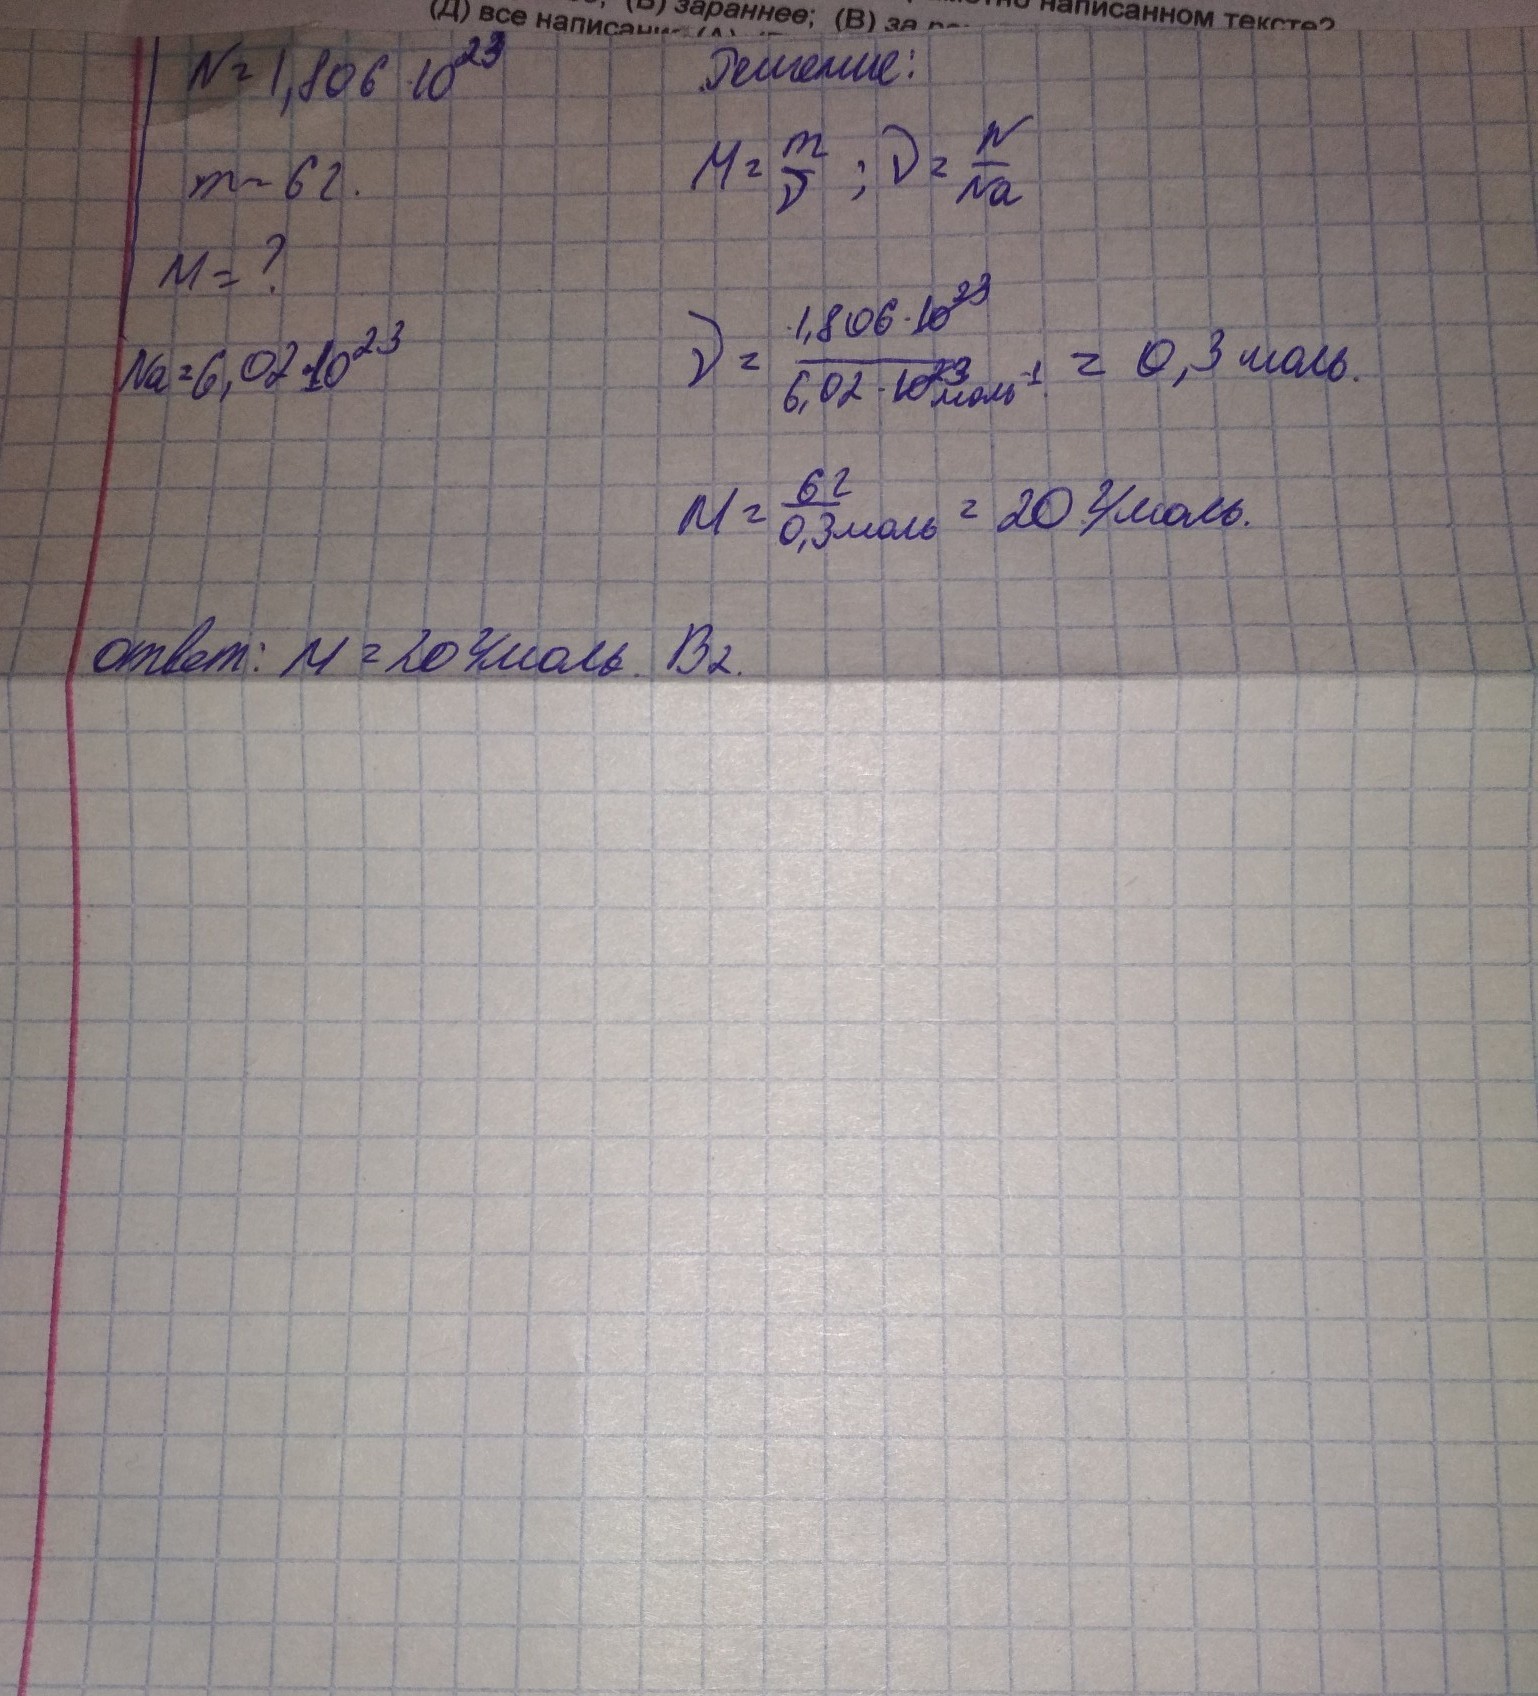 написанном тексте?
(Д) все (В) зараннее; (В) за
N=1,806·10²³
m=6г.
M=?
Na=6,02·10²³
Решение:
M=m/ν; ν=N/Na
ν=1,806·10²³/6,02·10²³моль⁻¹=0,3 моль.
M=6г/0,3моль=20 г/моль.
ответ: M=20 г/моль. B2.